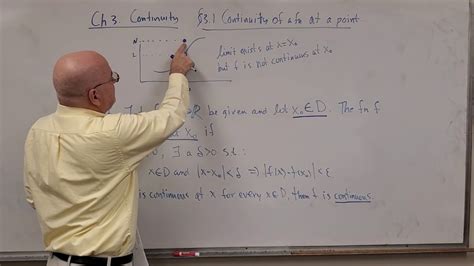 Ch 3 Continuity §3.1 Continuity of a fn at a point
N
L
limit exists at x=x₀
but f is not continuous at x₀
be given and let x₀∈D. The fn f
x₀ if
∃ a δ>0 s.t.:
x∈D and |x-x₀|<δ ⇒ |f(x)-f(x₀)|<ε
is continuous at x for every x∈D, then f is continuous.